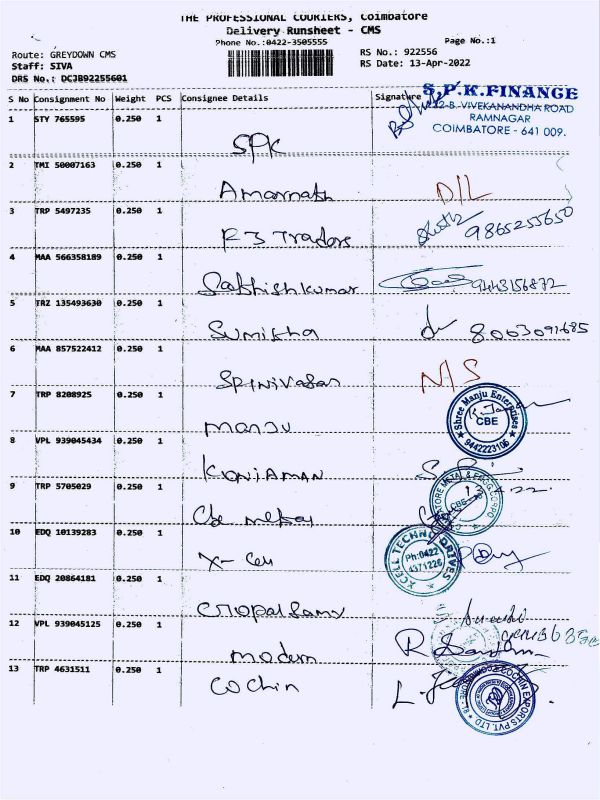 THE PROFESSIONAL COURIERS, Coimbatore
Delivery Runsheet - CMS
Phone No.:0422-3505555 Page No.:1
Route: GREYDOWN CMS RS No.: 922556
Staff: SIVA RS Date: 13-Apr-2022
DRS No.: DCJB92255601
S No Consignment No Weight PCS Consignee Details Signature
S.P.K.FINANCE
VIVEKANANDHA ROAD
RAMNAGAR
COIMBATORE - 641 009.
1 STY 765595 0.250 1 SPK
2 TMI 50007163 0.250 1 Amarnath D/L
3 TRP 5497235 0.250 1 F3 Traders 9865255650
4 MAA 566358189 0.250 1 Sabhishkumar 9443156872
5 TRZ 135493630 0.250 1 Sumisha 8063091685
6 MAA 857522412 0.250 1 Srinivasan N/S
7 TRP 8208925 0.250 1 manju
Shree Manju Enterprises
CBE
9442223106
8 VPL 939045434 0.250 1 KONIAMAN
9 TRP 5705029 0.250 1 Cbe metal
CBE
10 EDQ 10139283 0.250 1 X-Cell
XCELL TECHNO DRIVES
Ph:0422
4371226
11 EDQ 20864181 0.250 1 Gopalsamy
12 VPL 939045125 0.250 1 modern
13 TRP 4631511 0.250 1 Cochin
COCHIN EXPORTS PVT. LTD